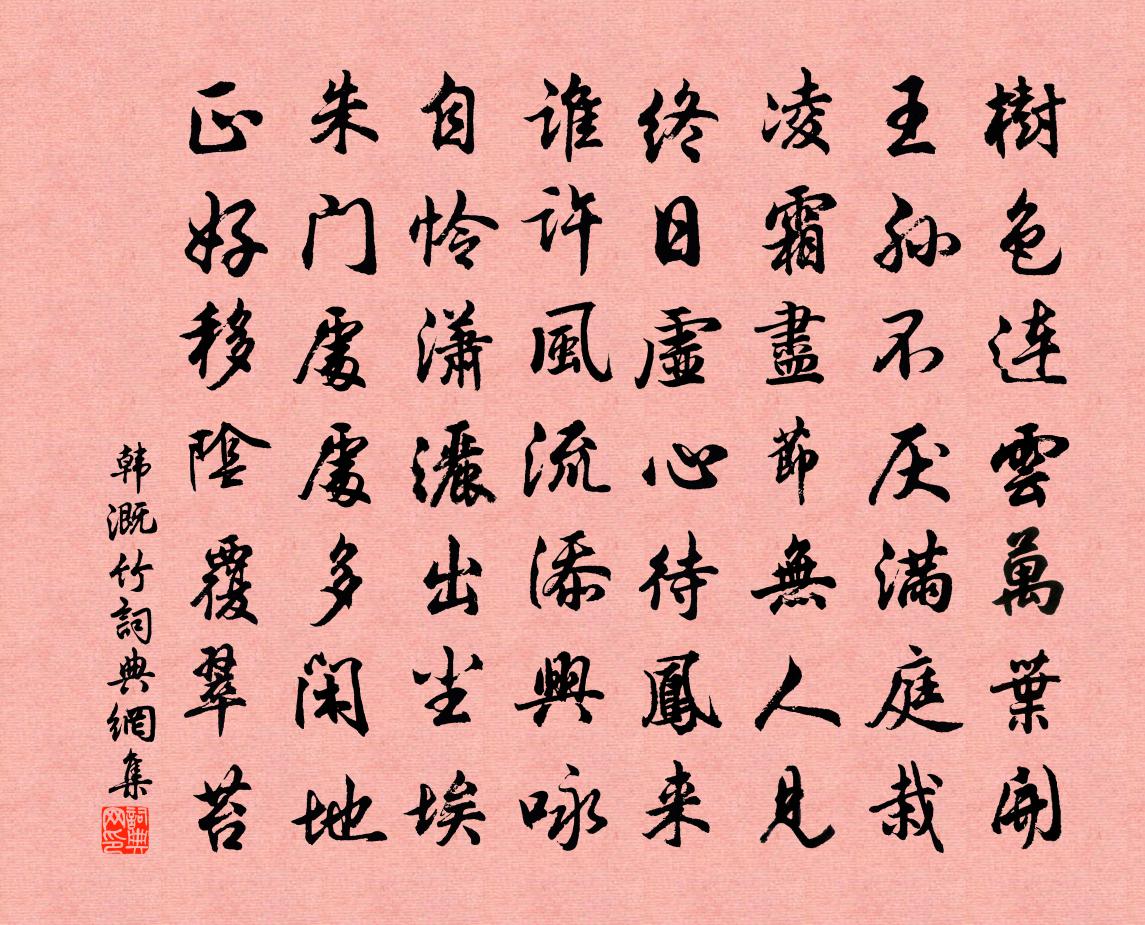 樹色连雲萬葉開
王孙不厌满庭栽
凌霜盡節無人見
终日虛心待鳳来
谁许風流添興咏
自怜瀟灑出尘埃
朱门處處多闲地
正好移陰覆翠苔
韩溉竹詞典網集
詞典网印